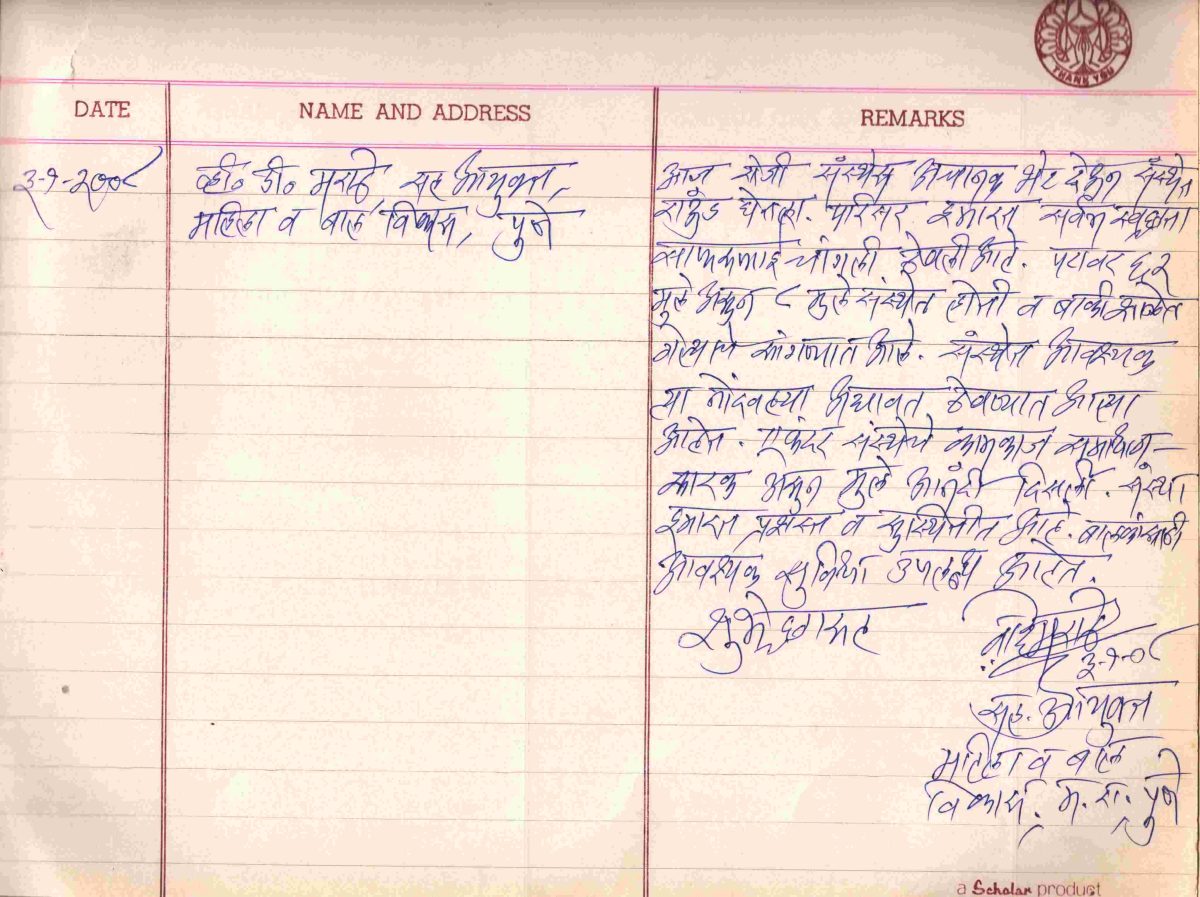 THANK YOU
DATE
NAME AND ADDRESS
REMARKS
३-१-२००८
व्ही. डी. मराठे, सह आयुक्त,
महिला व बाल विकास, पुणे
आज रोजी संस्थेस अचानक भेट देऊन संस्थेत
राऊंड घेतला. परिसर इमारत सर्वत्र स्वच्छता
साफसफाई चांगली ठेवली आहे. पटावर ६२
मुले असून ८ मुले संस्थेत होती व बाकी शाळेत
गेल्याचे सांगण्यात आले. संस्थेत आवश्यक
त्या नोंदवह्या अद्यावत ठेवण्यात आल्या
आहेत. एकंदर संस्थेचे कामकाज समाधान-
कारक असून मुले आनंदी दिसली. संस्था
इमारत प्रशस्त व सुस्थितीत आहे. बालकांसाठी
आवश्यक सुविधा उपलब्ध आहेत.
शुभेच्छासह
३-१-०८
सह. आयुक्त
महिला व बाल
विकास, म. रा. पुणे
a Scholar product